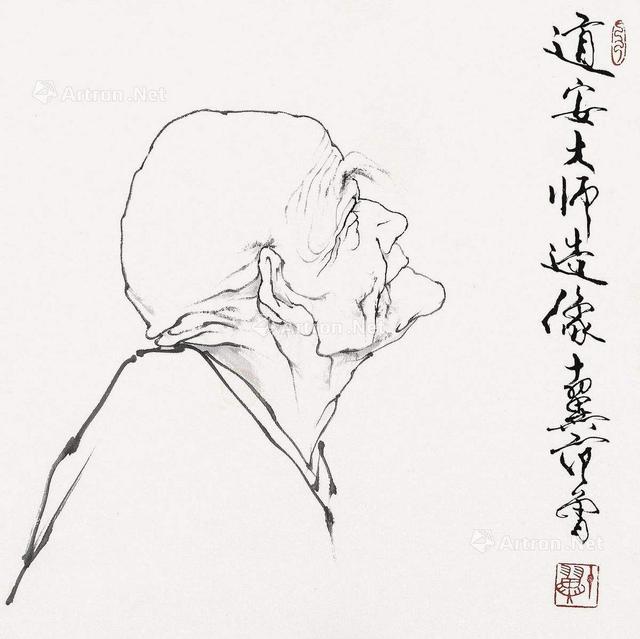 道安大师造像十翼范曾
Artron.Net
Artron.Net
Artron.Net